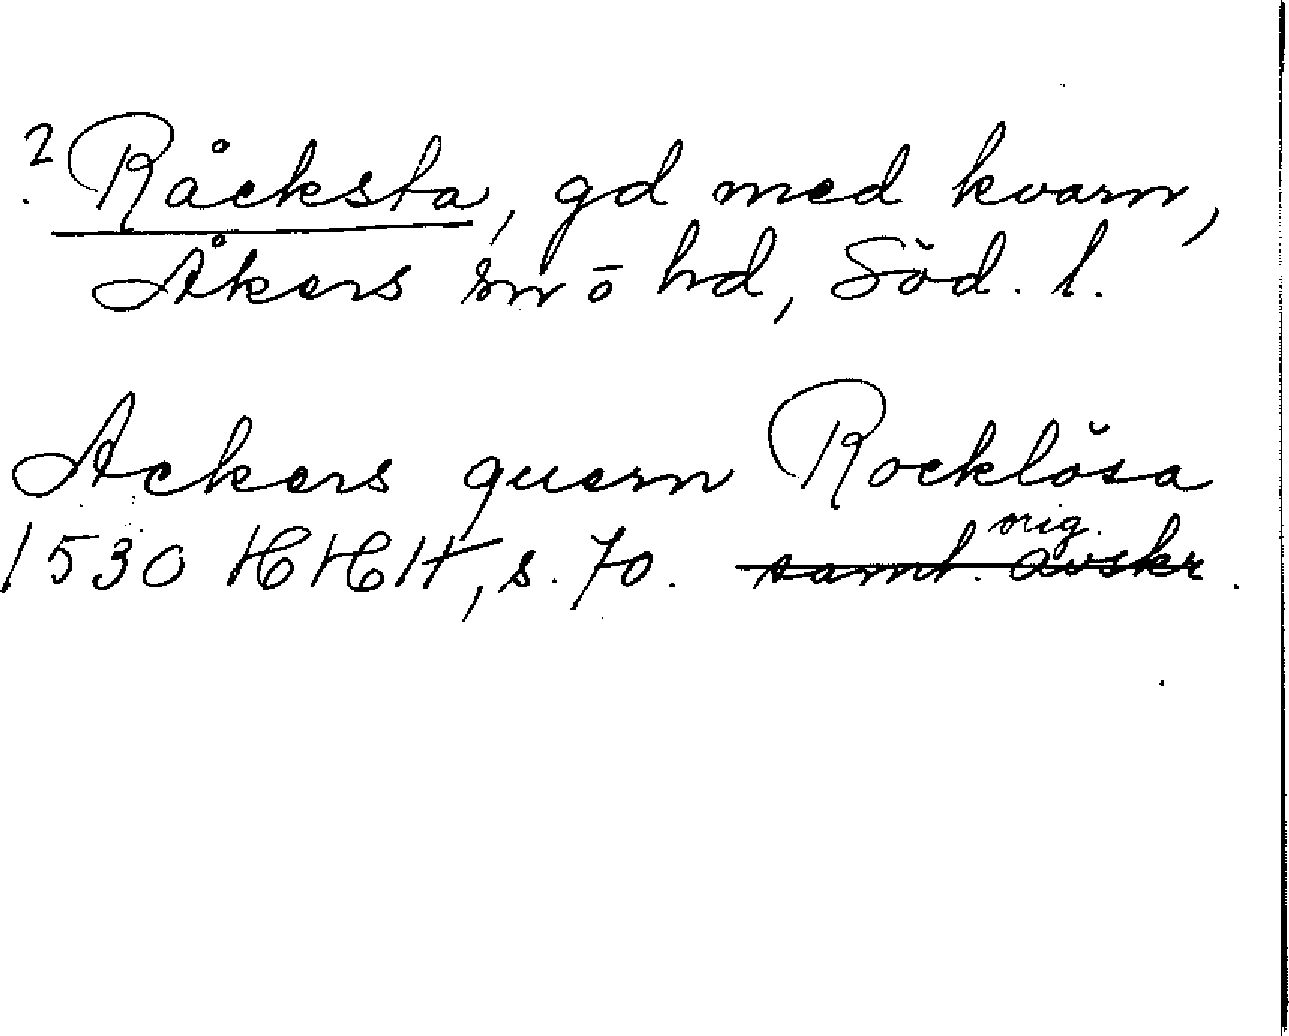 ? Råcksta, gd med kvarn,
Åkers sn ō hd, Söd. l.
Ackers quern Rocklösa
orig.
1530 HHH, s. 70. samt. avskr.